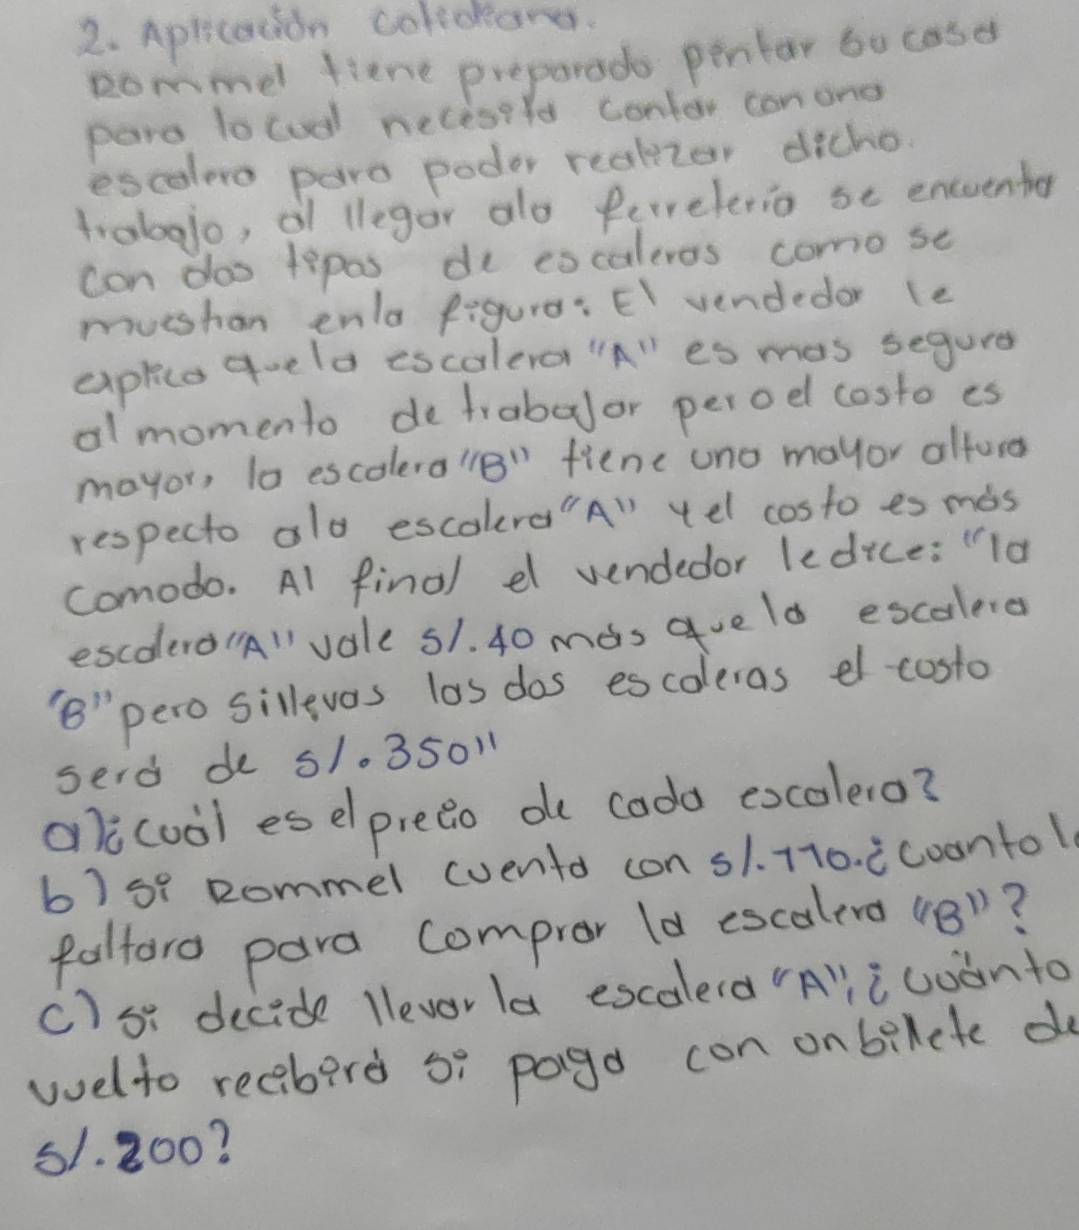 2. Aplicación cotidiana.
Rommel tiene preparado pintar su casa
para locual necesita contar con una
escalera para poder realizar dicho.
trabajo, al llegar ala ferreteria se encuentra
con dos tipos de escaleras como se
muestran enla figura: El vendedor le
explica quela escalera "A" es mas segura
al momento de trabajar peroel costo es
mayor, la escalera "B" tiene una mayor altura
respecto ala escalera "A" yel costo es más
comodo. Al final el vendedor ledice: "la
escalera "A" vale s/.40 más quela escalera
"B" pero sillevas las dos escaleras el costo
será de s/.350"
a) ¿cuál es el precio de cada escalera?
b) si Rommel cuenta con s/.110. ¿cuanto l
faltara para comprar la escalera "B"?
c) si decide llevar la escalera "A", ¿cuánto
vuelto recibirá si paga con un billete de
s/.200?